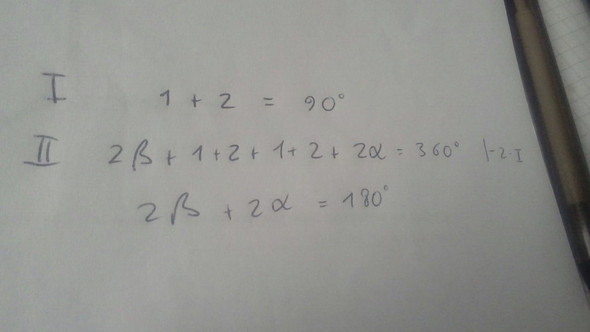 I 1 + 2 = 90°
II 2β + 1+2 + 1+2 + 2α = 360° |-2·I
2β + 2α = 180°